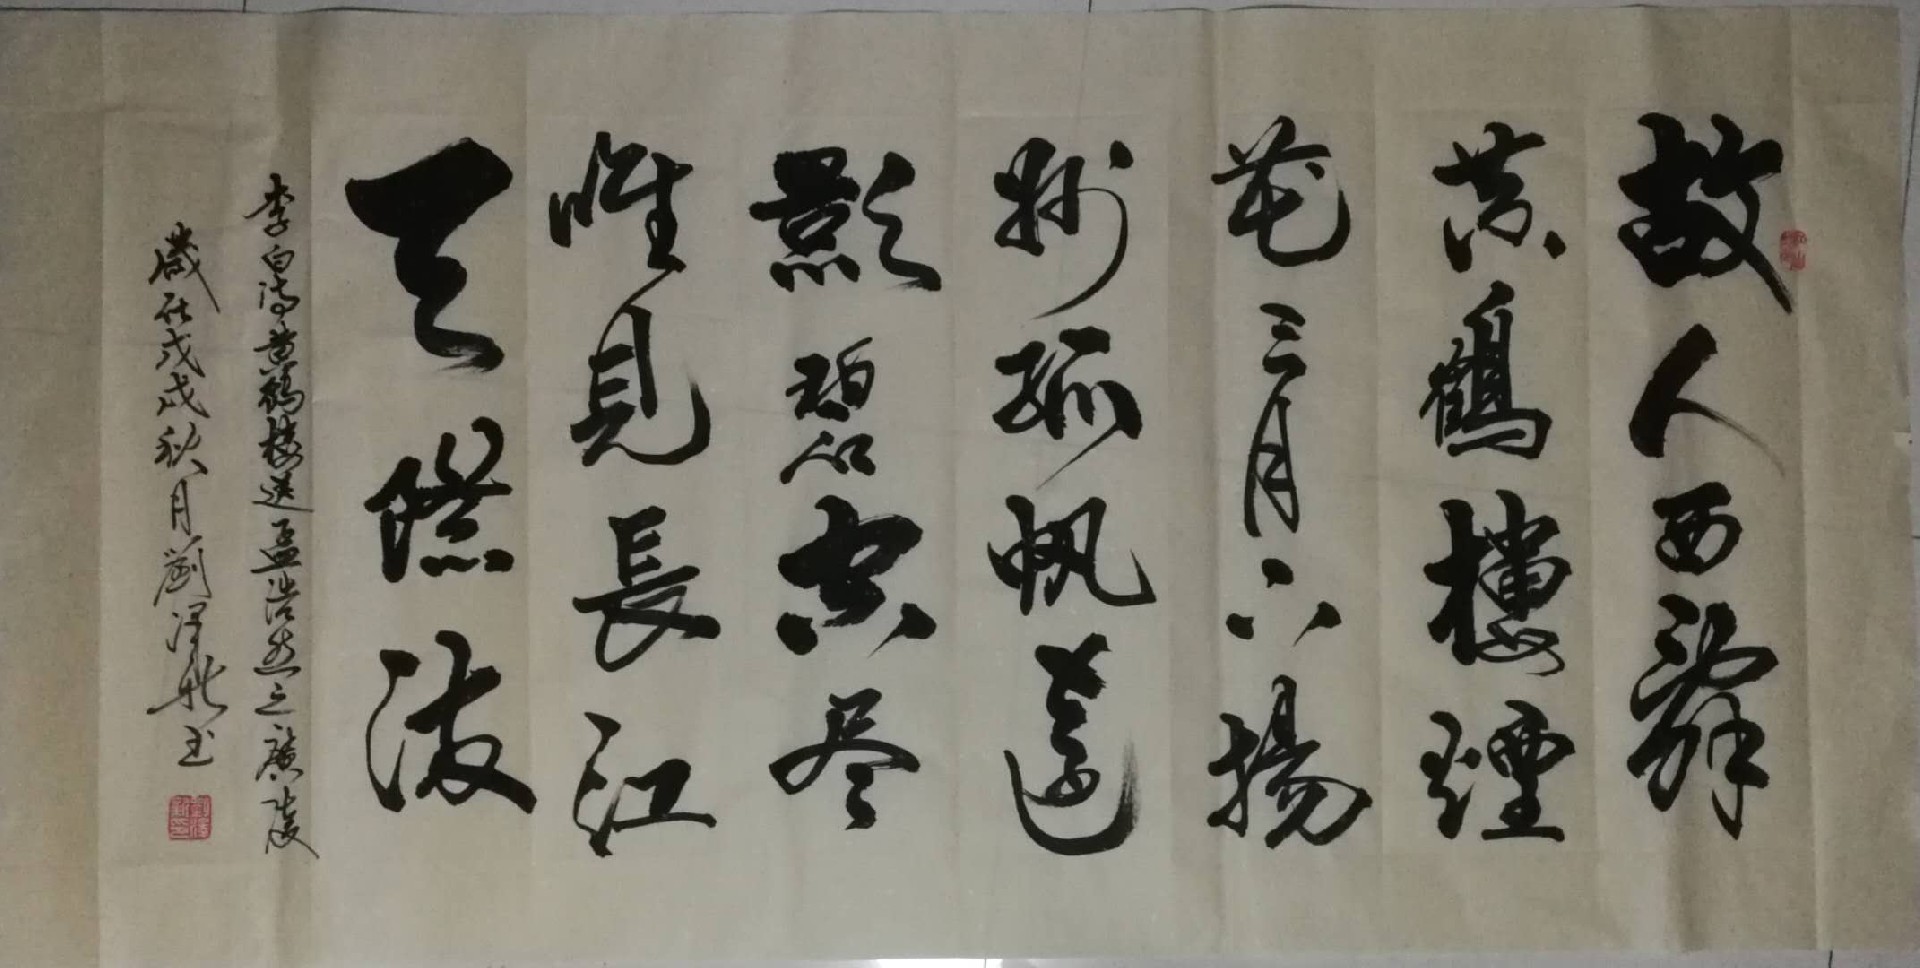 故人西辭
黄鶴樓煙
花三月下揚
州孤帆遠
影碧空尽
唯見長江
天際流
李白詩黄鶴楼送孟浩然之廣陵
歲在戊戌秋月劉澤新书